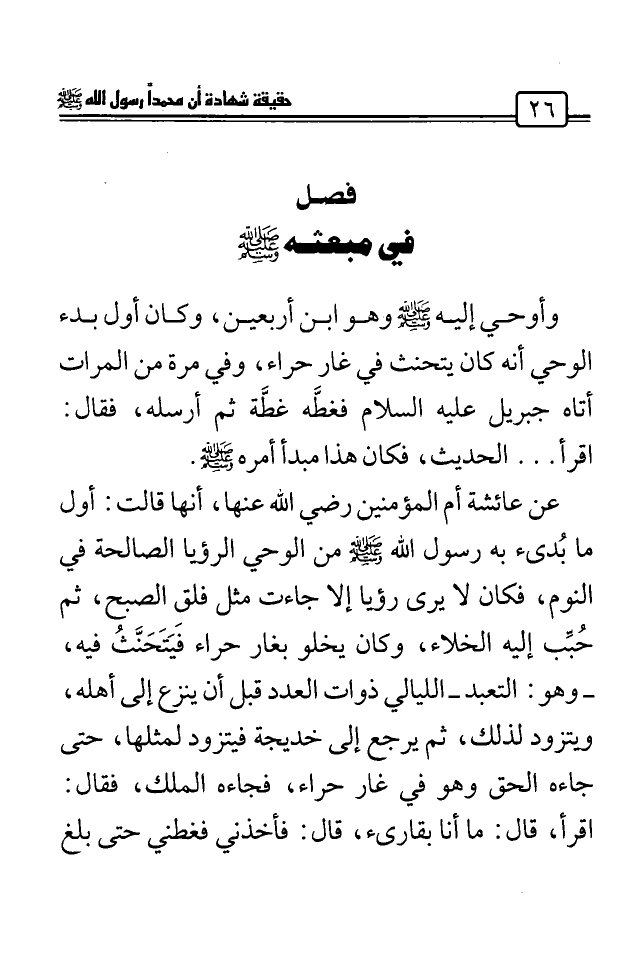 حقيقة شهادة أن محمداً رسول الله ﷺ
٢٦
فصل
في مبعثه ﷺ
وأوحي إليه ﷺ وهو ابن أربعين، وكان أول بدء
الوحي أنه كان يتحنث في غار حراء، وفي مرة من المرات
أتاه جبريل عليه السلام فغطَّه غطَّة ثم أرسله، فقال:
اقرأ... الحديث، فكان هذا مبدأ أمره ﷺ.
عن عائشة أم المؤمنين رضي الله عنها، أنها قالت: أول
ما بُدىء به رسول الله ﷺ من الوحي الرؤيا الصالحة في
النوم، فكان لا يرى رؤيا إلا جاءت مثل فلق الصبح، ثم
حُبِّب إليه الخلاء، وكان يخلو بغار حراء فَيَتَحَنَّثُ فيه،
ـ وهو: التعبد ـ الليالي ذوات العدد قبل أن ينزع إلى أهله،
ويتزود لذلك، ثم يرجع إلى خديجة فيتزود لمثلها، حتى
جاءه الحق وهو في غار حراء، فجاءه الملك، فقال:
اقرأ، قال: ما أنا بقارىء، قال: فأخذني فغطني حتى بلغ